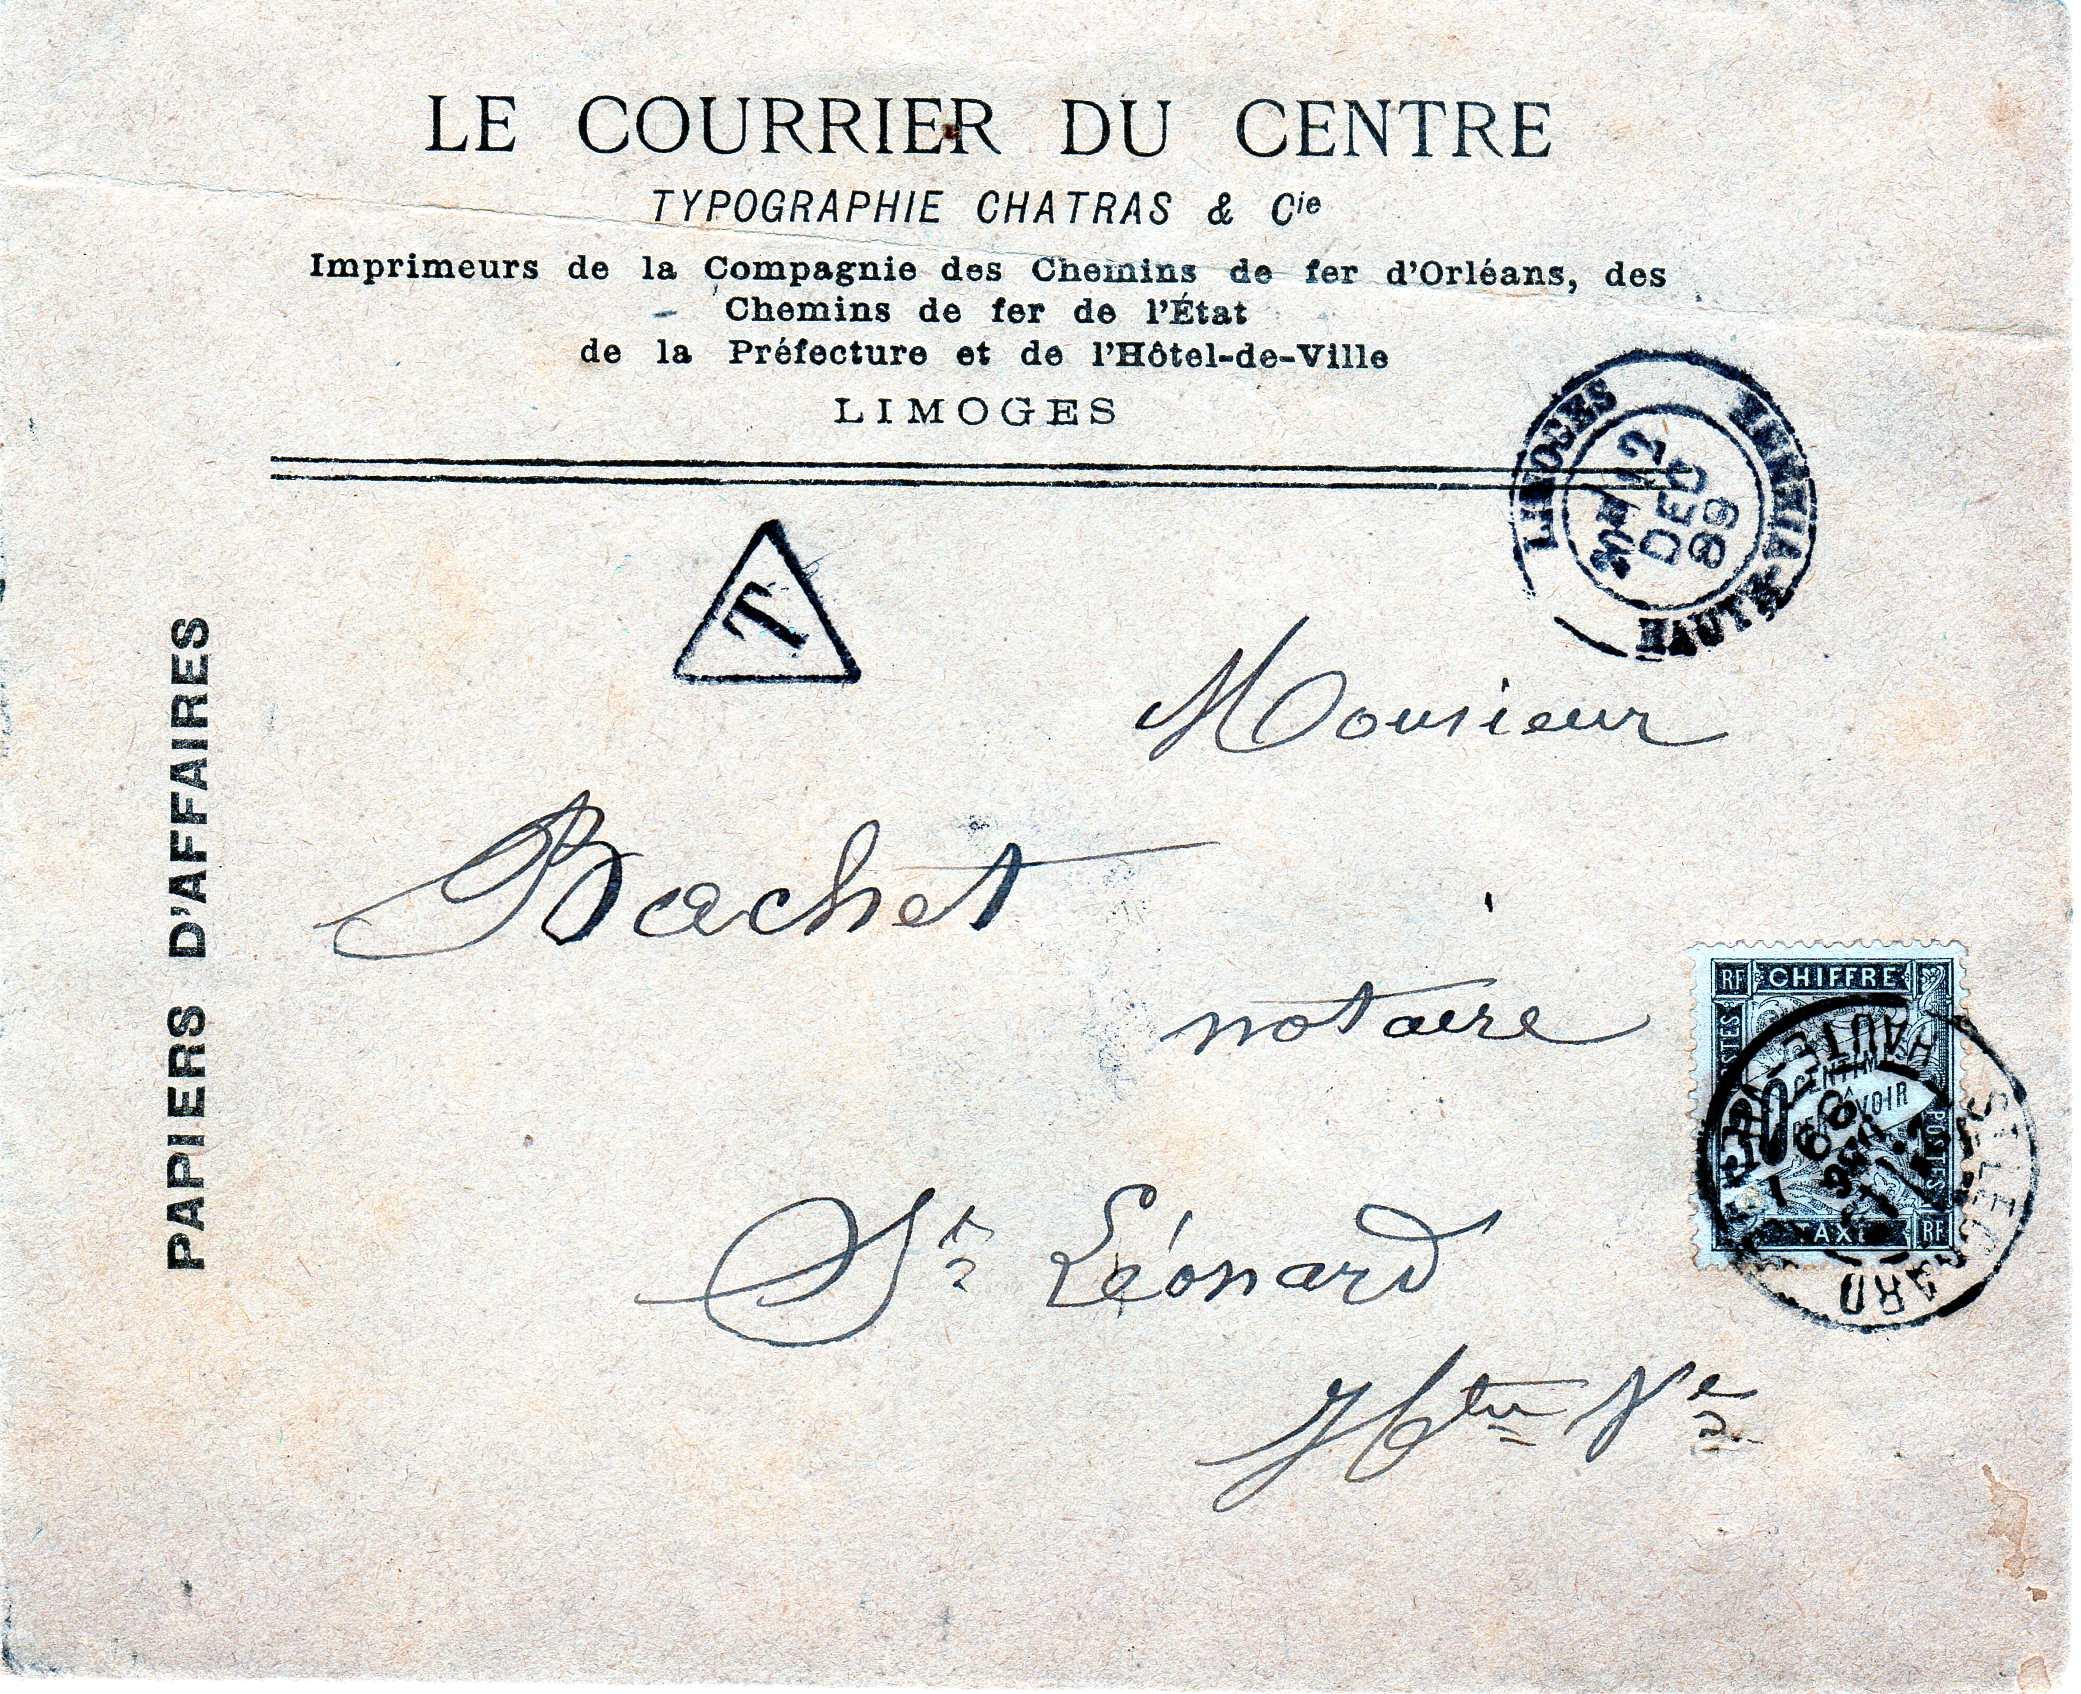 LE COURRIER DU CENTRE
TYPOGRAPHIE CHATRAS & Cie
Imprimeurs de la Compagnie des Chemins de fer d'Orléans, des
Chemins de fer de l'État
de la Préfecture et de l'Hôtel-de-Ville
LIMOGES
LIMOGES
12
DEC
99
HTE VIENNE
T
PAPIERS D'AFFAIRES
Monsieur
Bachet
notaire
St Léonard
Hte Vne
RF CHIFFRE
POSTES
CENTIM
VOIR
TAXE RF
HAUTE
ST LEONARD